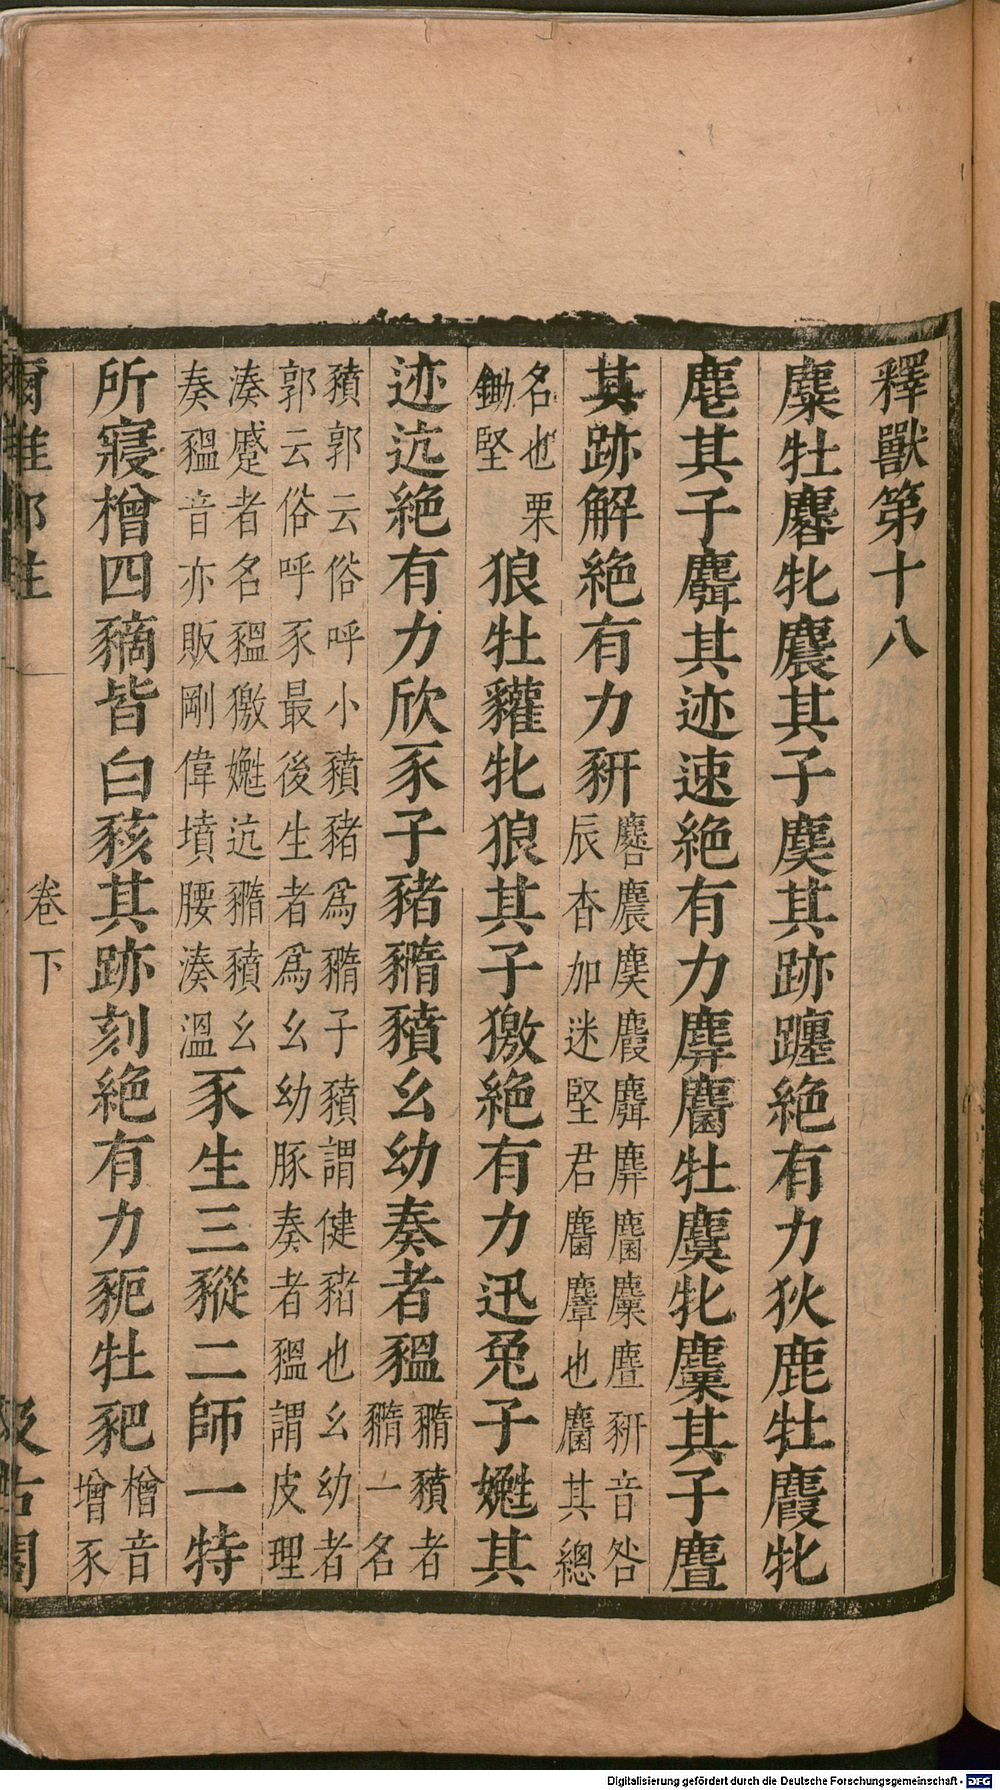 釋獸第十八
麋牡麔牝麎其子䴠其跡躔絕有力狄鹿牡麚牝
麀其子麛其迹速絕有力麉麕牡麌牝麜其子麆
其跡解絕有力豜麔麎䴠麚麛麉麕麜麆豜音咎
辰杳加迷堅君麕麞也麕其總
名也栗
鋤堅
狼牡貛牝狼其子獥絕有力迅兔子嬎其
迹迒絕有力欣豕子豬䝐豶幺幼奏者豱䝐豶者
䝐一名
豶郭云俗呼小豶豬爲䝐子豶謂犍豬也幺幼者
郭云俗呼豕最後生者爲幺幼豚奏者豱謂皮理
湊蹙者名豱獥嬎迒䝐豶幺
奏豱音亦販剛偉墳腰湊溫
豕生三豵二師一特
所寢橧四豴皆白豥其跡刻絕有力䝈牡豝橧音
增豕
爾雅鄭注
卷下
汲古閣
Digitalisierung gefördert durch die Deutsche Forschungsgemeinschaft - DFG